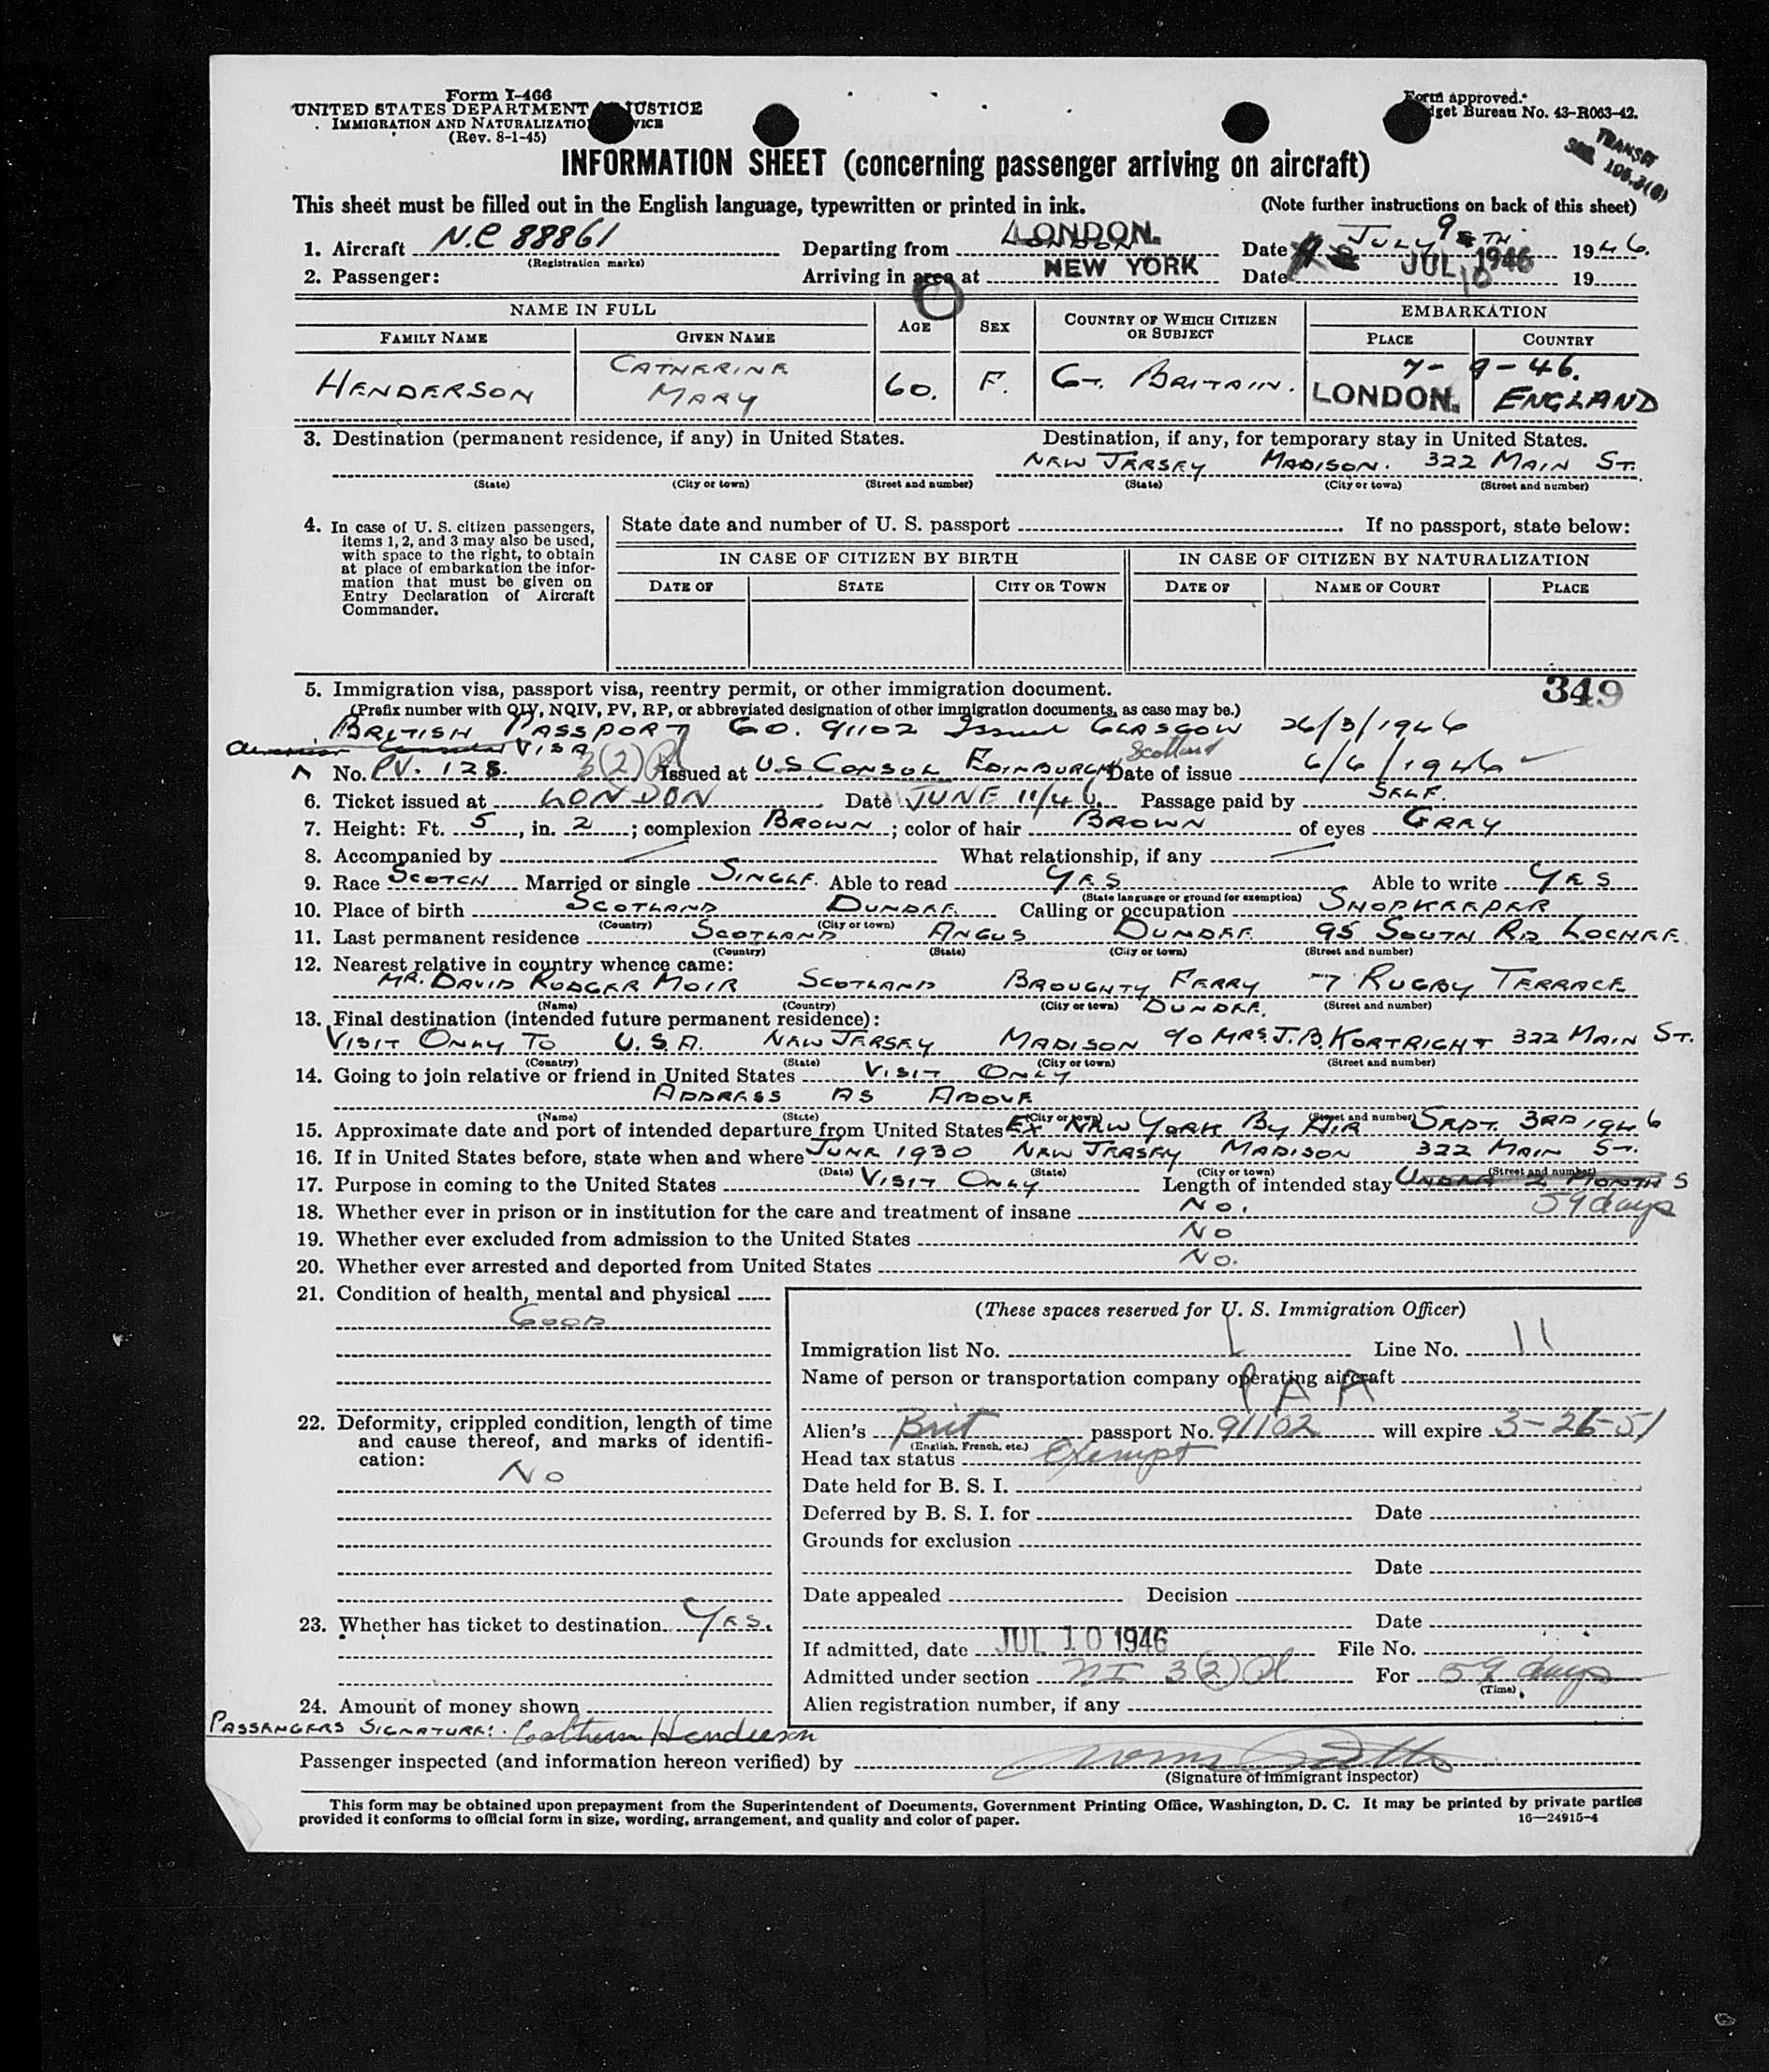 Form I-466
UNITED STATES DEPARTMENT JUSTICE
IMMIGRATION AND NATURALIZATIO VICE
(Rev. 8-1-45)
Form approved.
get Bureau No. 43-R063-42.
TRANSIT
105.3(6)
INFORMATION SHEET (concerning passenger arriving on aircraft)
This sheet must be filled out in the English language, typewritten or printed in ink. (Note further instructions on back of this sheet)
1. Aircraft N.C 88861 Departing from LONDON. Date JULY 9TH 1946.
(Registration marks)
2. Passenger: Arriving in area at NEW YORK Date JUL 10 1946 19
NAME IN FULL AGE SEX COUNTRY OF WHICH CITIZEN OR SUBJECT EMBARKATION
FAMILY NAME GIVEN NAME PLACE COUNTRY
HENDERSON CATHERINE MARY 60. F. GT. BRITAIN. 7-9-46. LONDON. ENGLAND
3. Destination (permanent residence, if any) in United States. Destination, if any, for temporary stay in United States.
NEW JERSEY MADISON. 322 MAIN ST.
(State) (City or town) (Street and number) (State) (City or town) (Street and number)
4. In case of U. S. citizen passengers, items 1, 2, and 3 may also be used, with space to the right, to obtain at place of embarkation the information that must be given on Entry Declaration of Aircraft Commander.
State date and number of U. S. passport . If no passport, state below:
IN CASE OF CITIZEN BY BIRTH IN CASE OF CITIZEN BY NATURALIZATION
DATE OF STATE CITY OR TOWN DATE OF NAME OF COURT PLACE
349
5. Immigration visa, passport visa, reentry permit, or other immigration document.
(Prefix number with QIV, NQIV, PV, RP, or abbreviated designation of other immigration documents, as case may be.)
BRITISH PASSPORT GO. 91102 Issued GLASGOW 26/3/1946
American Consular VISA
Scotland
No. PV. 128. 3(2) Issued at U.S CONSUL EDINBURGH Date of issue 6/6/1946
6. Ticket issued at LONDON Date JUNE 11/46. Passage paid by SELF.
7. Height: Ft. 5, in. 2; complexion BROWN; color of hair BROWN of eyes GREY
8. Accompanied by What relationship, if any
9. Race SCOTCH Married or single SINGLE. Able to read YES Able to write YES
(State language or ground for exemption)
10. Place of birth SCOTLAND DUNDEE. Calling or occupation SHOPKEEPER
(Country) (City or town)
11. Last permanent residence SCOTLAND ANGUS DUNDEE. 95 SOUTH RD LOCHEE
(Country) (State) (City or town) (Street and number)
12. Nearest relative in country whence came:
MR. DAVID RODGER MOIR SCOTLAND BROUGHTY FERRY 7 RUGBY TERRACE
(Name) (Country) (City or town) DUNDEE. (Street and number)
13. Final destination (intended future permanent residence):
VISIT ONLY TO U.S.A. NEW JERSEY MADISON c/o MRS. J.B. KORTRIGHT 322 MAIN ST.
(Country) (State) (City or town) (Street and number)
14. Going to join relative or friend in United States VISIT ONLY
ADDRESS AS ABOVE
(Name) (State) (City or town) (Street and number)
15. Approximate date and port of intended departure from United States EX NEW YORK BY AIR SEPT. 3RD 1946
16. If in United States before, state when and where JUNE 1930 NEW JERSEY MADISON 322 MAIN ST.
(Date) (State) (City or town) (Street and number)
17. Purpose in coming to the United States VISIT ONLY Length of intended stay UNDER 2 MONTHS
59 days
18. Whether ever in prison or in institution for the care and treatment of insane NO.
19. Whether ever excluded from admission to the United States NO
20. Whether ever arrested and deported from United States NO.
21. Condition of health, mental and physical
GOOD
22. Deformity, crippled condition, length of time and cause thereof, and marks of identification:
NO
23. Whether has ticket to destination. YES.
24. Amount of money shown
(These spaces reserved for U. S. Immigration Officer)
Immigration list No. 1 Line No. 11
Name of person or transportation company operating aircraft
P A A
Alien's Brit passport No. 91102 will expire 3-26-51
(English, French, etc.)
Head tax status Exempt
Date held for B. S. I.
Deferred by B. S. I. for Date
Grounds for exclusion
Date
Date appealed Decision
Date
If admitted, date JUL 10 1946 File No.
Admitted under section 3(2) For 59 days
(Time)
Alien registration number, if any
PASSENGERS SIGNATURE: Catherine Henderson
Passenger inspected (and information hereon verified) by
(Signature of immigrant inspector)
This form may be obtained upon prepayment from the Superintendent of Documents, Government Printing Office, Washington, D. C. It may be printed by private parties
provided it conforms to official form in size, wording, arrangement, and quality and color of paper. 16—24915-4